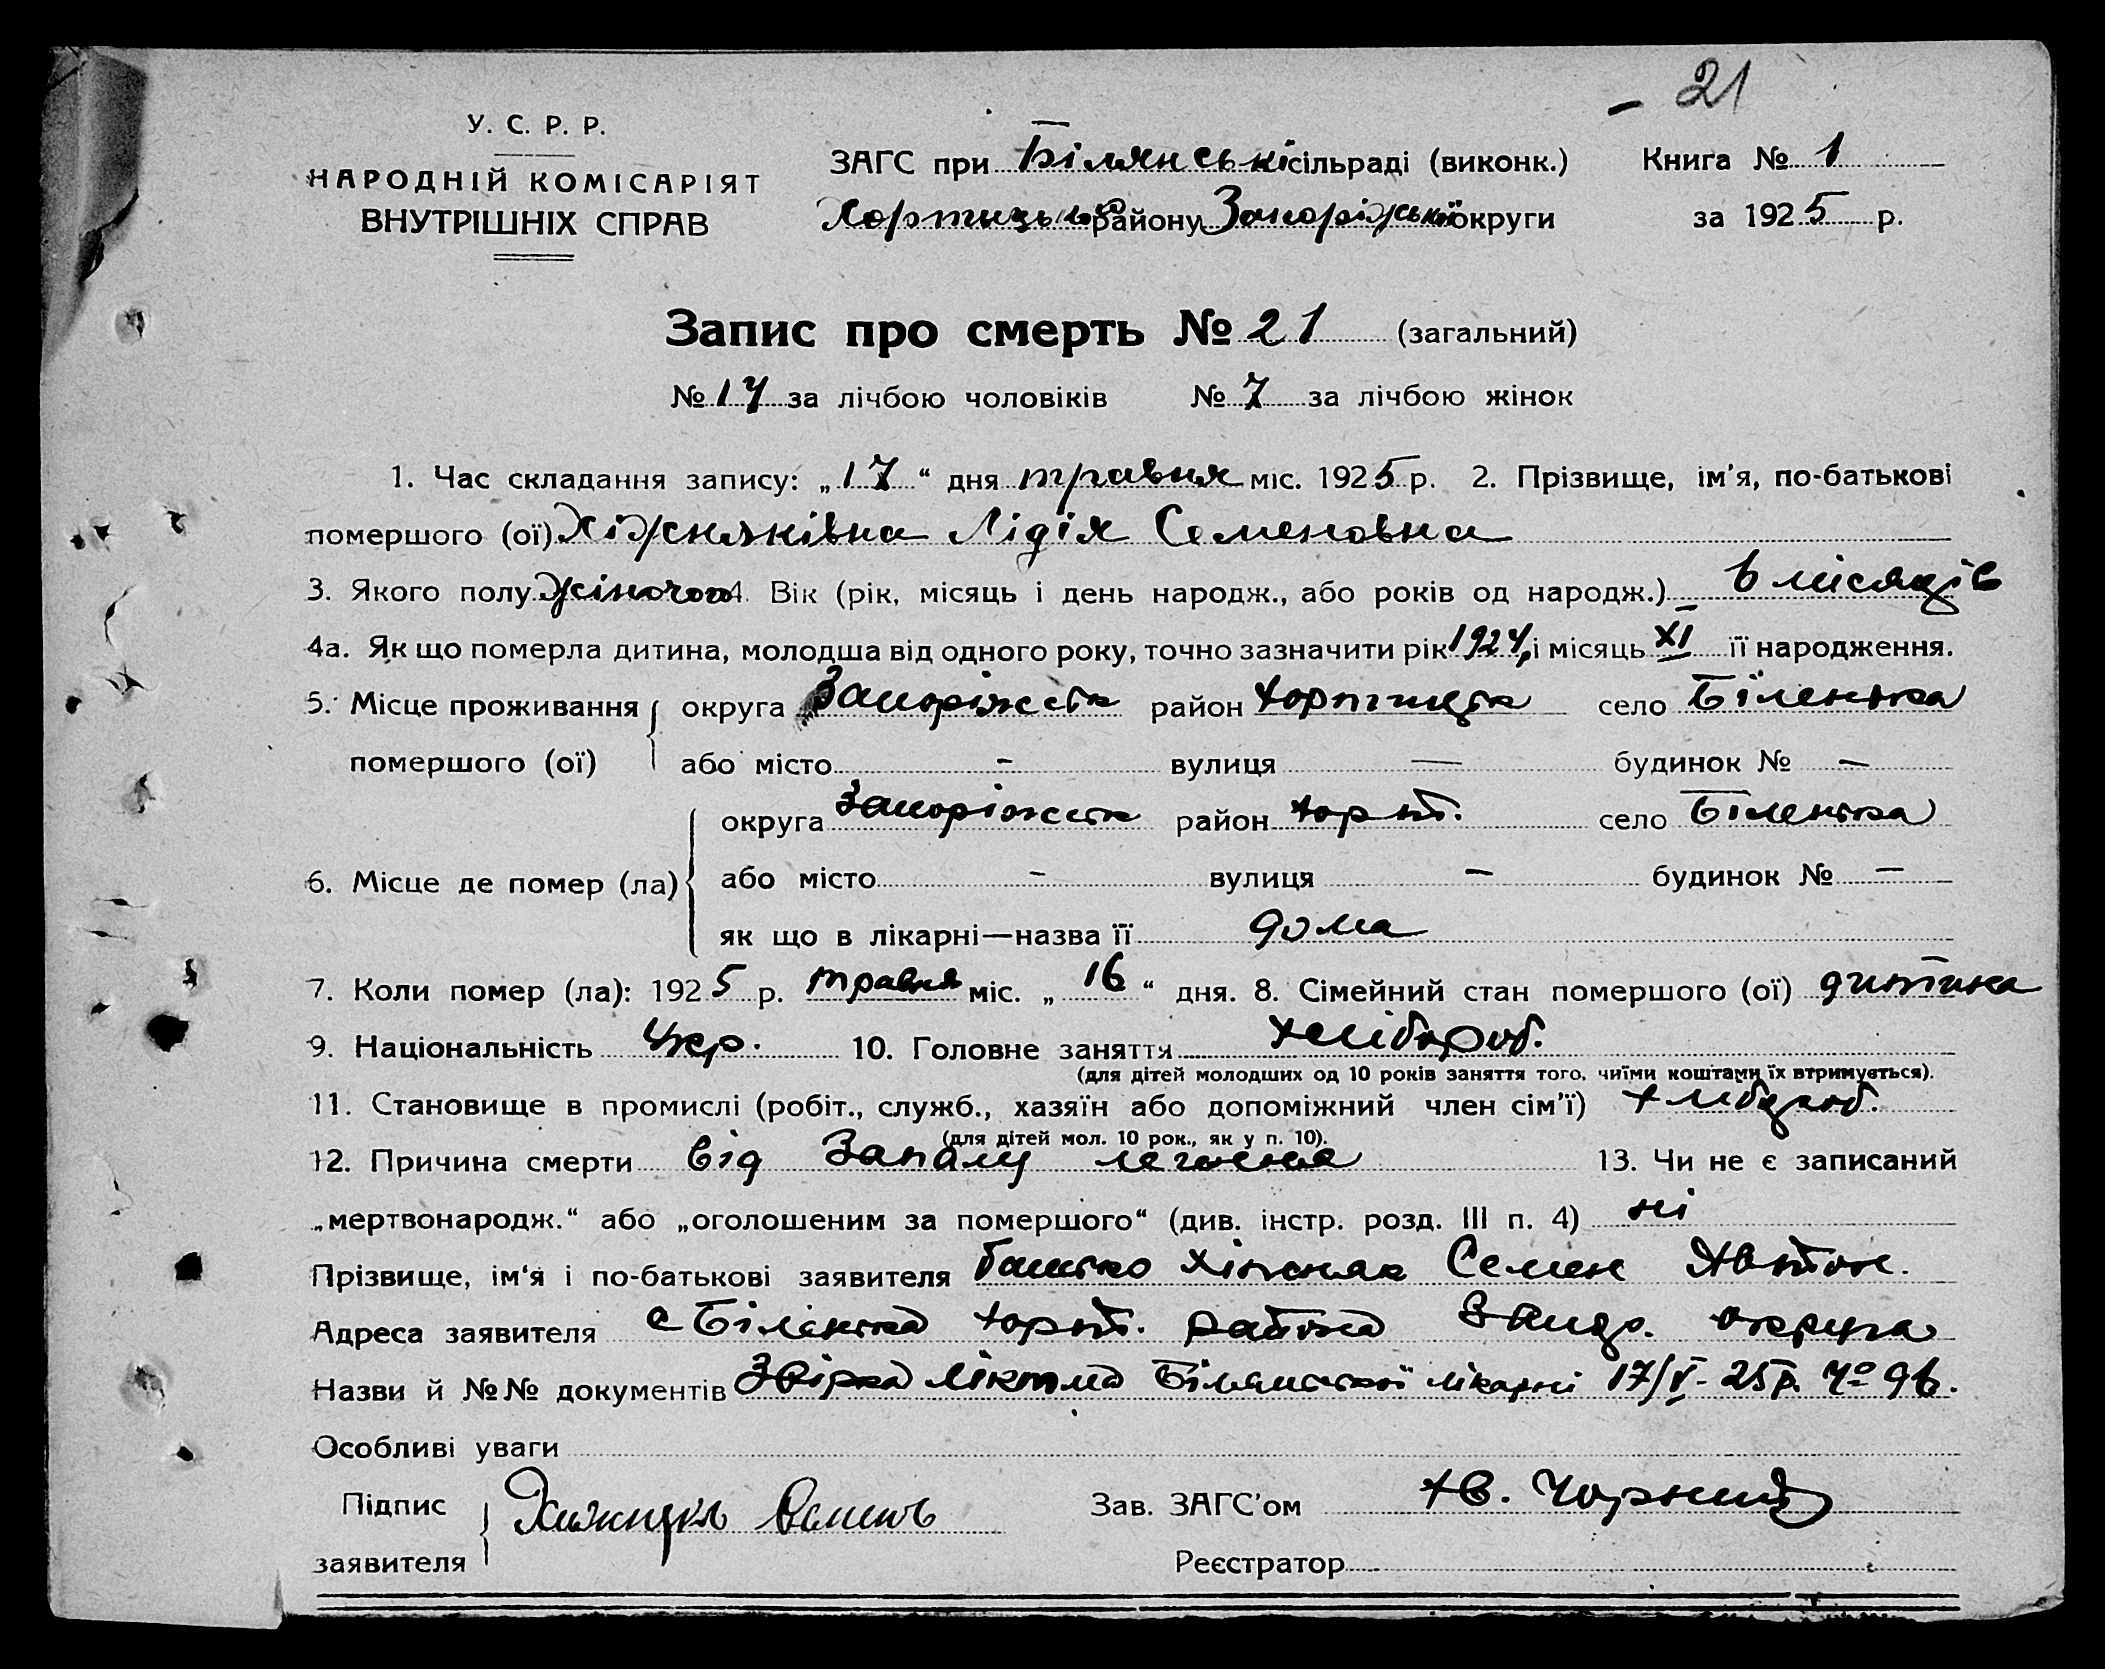 - 21
У. С. Р. Р.
НАРОДНІЙ КОМІСАРІЯТ
ВНУТРІШНІХ СПРАВ
ЗАГС при Білянській сільраді (виконк.) Книга № 1
Хортицьк району Запоріжської округи за 1925 р.
Запис про смерть № 21 (загальний)
№ 14 за лічбою чоловіків № 7 за лічбою жінок
1. Час складання запису: „17“ дня травня міс. 1925 р. 2. Прізвище, ім'я, по-батькові
помершого (ої) Хіжняківна Лідія Семеновна
3. Якого полу жіночого 4. Вік (рік, місяць і день народж., або років од народж.) 6 місяців
4а. Як що померла дитина, молодша від одного року, точно зазначити рік 1924, і місяць XI її народження.
5. Місце проживання округа Запоріжськ район Хортицьк село Біленька
помершого (ої) або місто - вулиця — будинок № —
округа Запоріжськ район Хорт. село Біленька
6. Місце де помер (ла) або місто - вулиця — будинок № —
як що в лікарні—назва її дома
7. Коли помер (ла): 1925 р. травня міс. „16“ дня. 8. Сімейний стан помершого (ої) дитина
9. Національність Укр. 10. Головне заняття хлібороб.
(для дітей молодших од 10 років заняття того, чиїми коштами їх втримується).
11. Становище в промислі (робіт., служб., хазяїн або допоміжний член сім'ї) хлібороб.
(для дітей мол. 10 рок., як у п. 10).
12. Причина смерти від запалу легень 13. Чи не є записаний
„мертвонародж.“ або „оголошеним за помершого“ (див. інстр. розд. III п. 4) ні
Прізвище, ім'я і по-батькові заявителя батько Хіжняк Семен Антон.
Адреса заявителя с Біленька Хорт. района Запор. округа
Назви й №№ документів лікаря Білянської лікарні 17/V-25 р. № 96.
Особливі уваги
Підпис Хижняк Семен Зав. ЗАГС'ом Чорний
заявителя Реєстратор